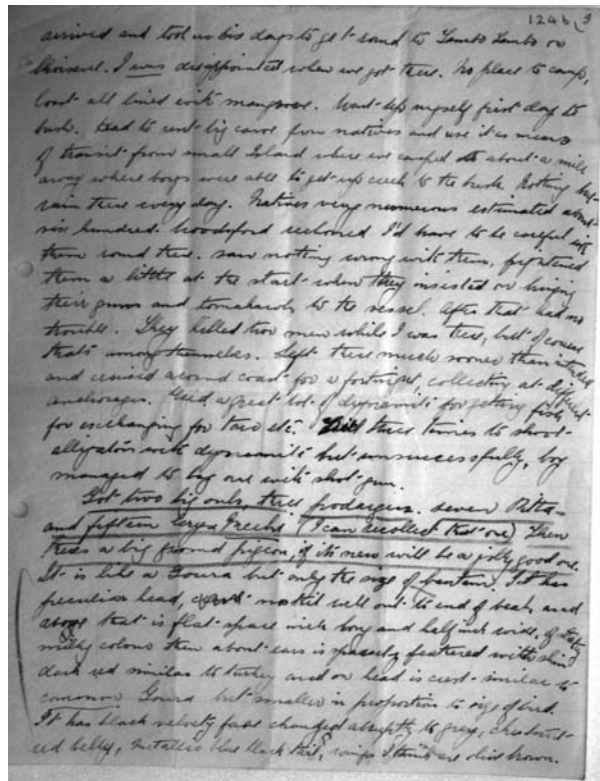 1246 9
arrived and took us six days to get round to Lambo Lambo on
Choiseul. I was disappointed when we got there. No place to camp,
coast all lined with mangrove. Went up myself first day to
bush. Had to rent big canoe from natives and use it as means
of transit from small Island where we camped to about a mile
away where boys were able to get up creek to the bush. Nothing but
rain there every day. Natives very numerous estimated about
six hundred. Woodford reckoned I'd have to be careful with
them round there. saw nothing wrong with them, frightened
them a little at the start when they insisted on bringing
their guns and tomahawks to the vessel. After that had no
trouble. They killed two men while I was there, but of course
that's among themselves. Left there much sooner than intended
and cruised around coast for a fortnight, collecting at different
anchorages. Used a great lot of dynamite for getting fish
for exchanging for taro etc. three times to shoot
alligators with dynamite but unsuccessfully, boy
managed to bag one with shot gun.
Got two big owls, three frodargus. seven Pitta
and fifteen large (I can recollect that one) Then
theres a big ground pigeon, if its new will be a jolly good one.
It is like a Goura but only the size of bantam. It has
peculiar head, nostril well out to end of beak, and
above that is flat space inch long and half inch wide, of
milky colour then about ears is sparsely featured with skin
dark red similar to turkey and on head is crest similar to
common Goura but smaller in proportion to size of bird.
It has black velvety face changed abruptly to grey, chestnut
red belly, metallic blue black tail, wings I think are olive brown.